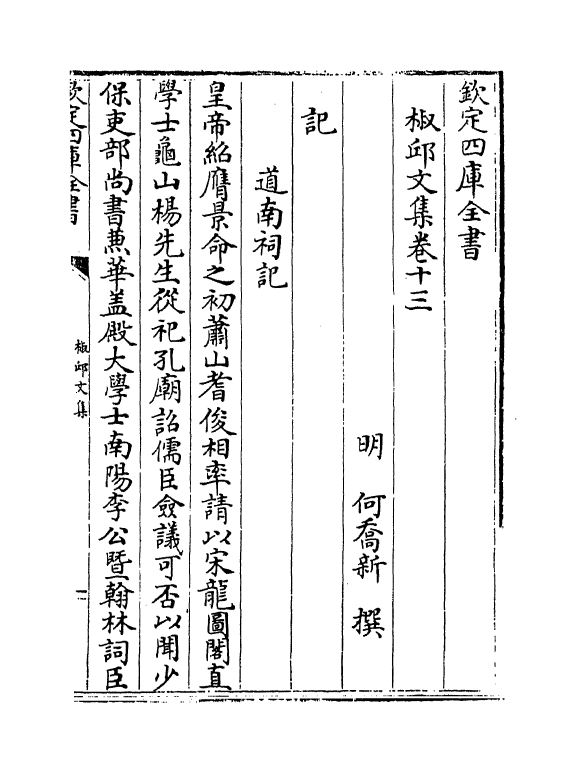 欽定四庫全書
椒邱文集卷十三
明 何喬新 撰
記
道南祠記
皇帝紹膺景命之初蕭山耆俊相率請以宋龍圖閣直
學士龜山楊先生從祀孔廟詔儒臣僉議可否以聞少
保吏部尚書兼華盖殿大學士南陽李公暨翰林詞臣
欽定四庫全書
椒邱文集
一